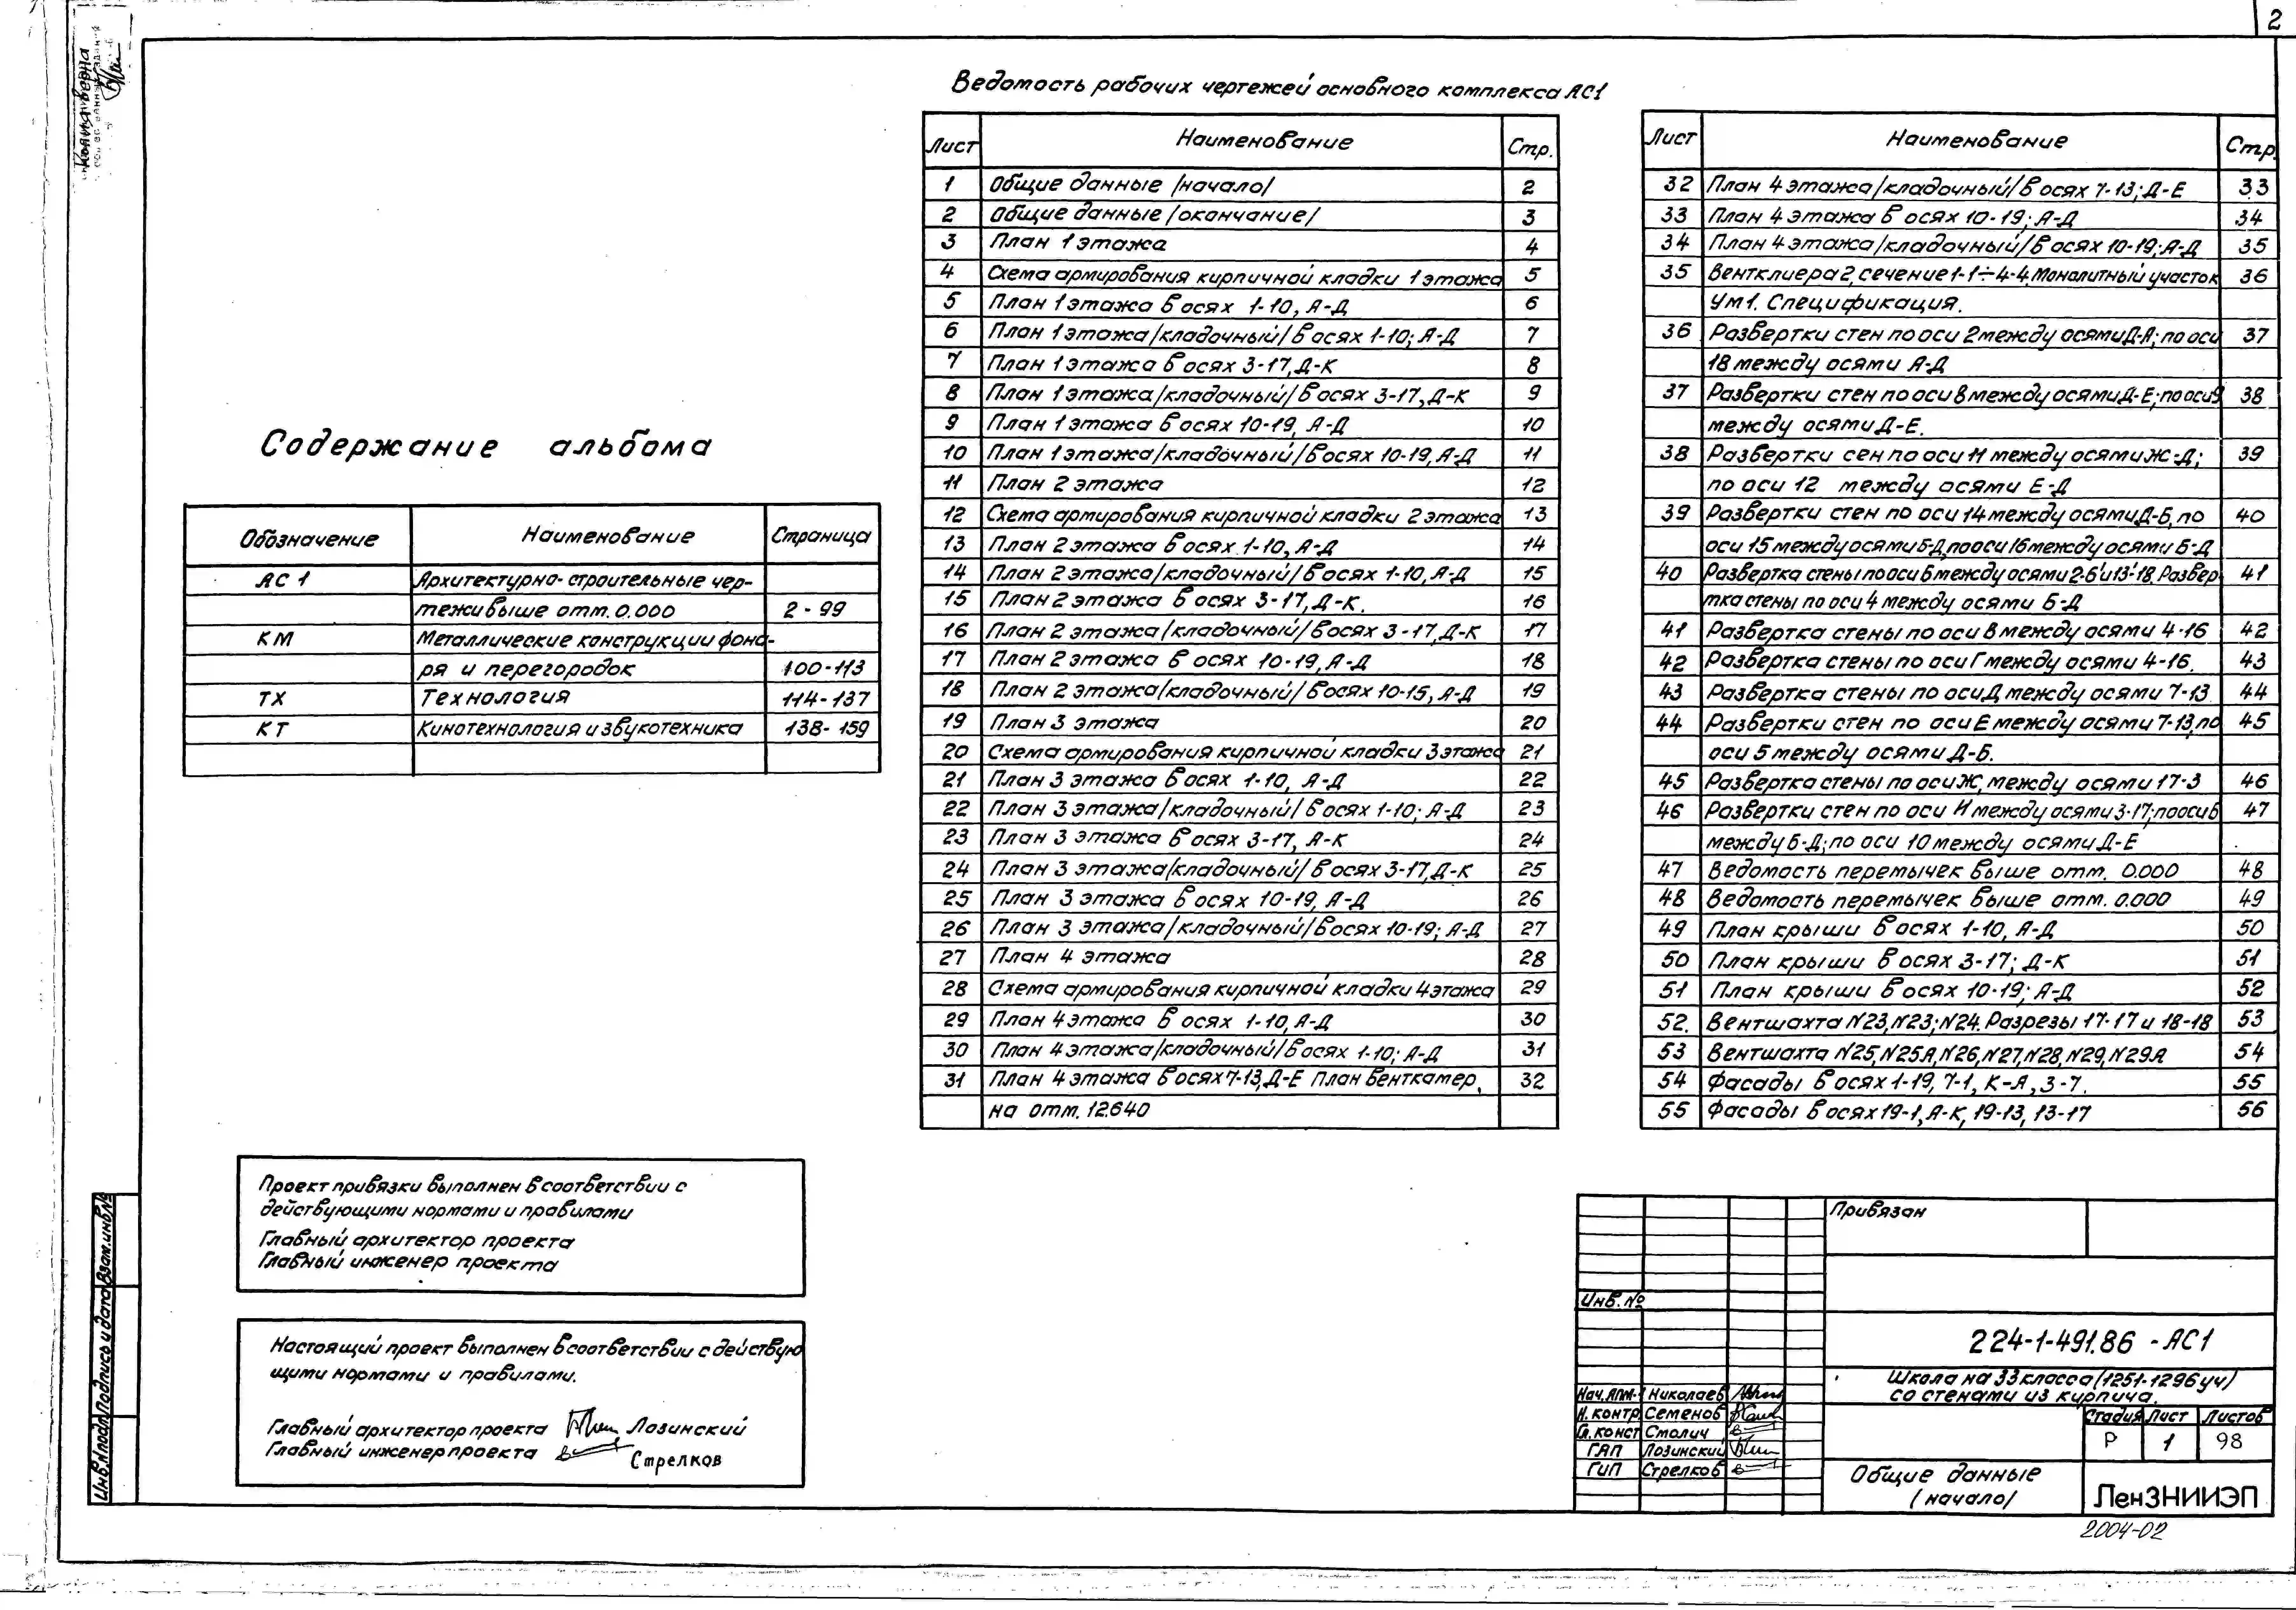 2
Копия верна
Ведомость рабочих чертежей основного комплекса АС1
Лист Наименование Стр.
1 Общие данные /начало/ 2
2 Общие данные /окончание/ 3
3 План 1 этажа 4
4 Схема армирования кирпичной кладки 1 этажа 5
5 План 1 этажа в осях 1-10, А-Д 6
6 План 1 этажа /кладочный/ в осях 1-10; А-Д 7
7 План 1 этажа в осях 3-17, Д-К 8
8 План 1 этажа /кладочный/ в осях 3-17, Д-К 9
9 План 1 этажа в осях 10-19, А-Д 10
10 План 1 этажа /кладочный/ в осях 10-19, А-Д 11
11 План 2 этажа 12
12 Схема армирования кирпичной кладки 2 этажа 13
13 План 2 этажа в осях 1-10, А-Д 14
14 План 2 этажа /кладочный/ в осях 1-10, А-Д 15
15 План 2 этажа в осях 3-17, Д-К. 16
16 План 2 этажа /кладочный/ в осях 3-17, Д-К 17
17 План 2 этажа в осях 10-19, А-Д 18
18 План 2 этажа /кладочный/ в осях 10-15, А-Д 19
19 План 3 этажа 20
20 Схема армирования кирпичной кладки 3 этажа 21
21 План 3 этажа в осях 1-10, А-Д 22
22 План 3 этажа /кладочный/ в осях 1-10; А-Д 23
23 План 3 этажа в осях 3-17, А-К 24
24 План 3 этажа /кладочный/ в осях 3-17, Д-К 25
25 План 3 этажа в осях 10-19, А-Д 26
26 План 3 этажа /кладочный/ в осях 10-19; А-Д 27
27 План 4 этажа 28
28 Схема армирования кирпичной кладки 4 этажа 29
29 План 4 этажа в осях 1-10, А-Д 30
30 План 4 этажа /кладочный/ в осях 1-10; А-Д 31
31 План 4 этажа в осях 7-13, Д-Е План венткамер 32
на отм. 12.640
Лист Наименование Стр.
32 План 4 этажа /кладочный/ в осях 7-13; Д-Е 33
33 План 4 этажа в осях 10-19; А-Д 34
34 План 4 этажа /кладочный/ в осях 10-19; А-Д 35
35 Вентклиера 2, сечение 1-1÷4-4, Монолитный участок 36
Ум1. Спецификация.
36 Развертки стен по оси 2 между осями Д-А; по оси 37
18 между осями А-Д
37 Развертки стен по оси 8 между осями Д-Е; по оси 9 38
между осями Д-Е.
38 Развертки сен по оси 11 между осями Ж-Д; 39
по оси 12 между осями Е-Д
39 Развертки стен по оси 14 между осями Д-Б, по 40
оси 15 между осями Б-Д, по оси 16 между осями Б-Д
40 Развертка стены по оси Б между осями 2-6 и 13-18. Развер 41
тка стены по оси 4 между осями Б-Д
41 Развертка стены по оси В между осями 4-16 42
42 Развертка стены по оси Г между осями 4-16. 43
43 Развертка стены по оси Д между осями 7-13 44
44 Развертки стен по оси Е между осями 7-13, по 45
оси 5 между осями Д-Б.
45 Развертка стены по оси Ж, между осями 17-3 46
46 Развертки стен по оси И между осями 3-17; по оси 6 47
между Б-Д; по оси 10 между осями Д-Е
47 Ведомость перемычек выше отм. 0.000 48
48 Ведомость перемычек выше отм. 0.000 49
49 План крыши в осях 1-10, А-Д 50
50 План крыши в осях 3-17; Д-К 51
51 План крыши в осях 10-19; А-Д 52
52. Вентшахта №23, №23; №24. Разрезы 17-17 и 18-18 53
53 Вентшахта №25, №25А, №26, №27, №28, №29, №29А 54
54 Фасады в осях 1-19, 7-1, К-А, 3-7. 55
55 Фасады в осях 19-1, А-К, 19-13, 13-17 56
Содержание альбома
Обозначение Наименование Страница
АС 1 Архитектурно-строительные чер-
тежи выше отм. 0.000 2-99
КМ Металлические конструкции фона-
ря и перегородок 100-113
ТХ Технология 114-137
КТ Кинотехнология и звукотехника 138-159
Проект привязки выполнен в соответствии с
действующими нормами и правилами
Главный архитектор проекта
Главный инженер проекта
Настоящий проект выполнен в соответствии с действую
щими нормами и правилами.
Главный архитектор проекта Лозинский
Главный инженер проекта Стрелков
Инв.№подл. Подпись и дата Взам.инв№
Привязан
Инв. №
224-1-491.86 - АС1
Школа на 33 класса (1251-1296 уч)
со стенами из кирпича.
Нач. АПМ-1 Николаев
Н. контр Семенов
Гл. конст Смолич
ГАП Лозинский
ГИП Стрелков
Стадия Лист Листов
Р 1 98
Общие данные
/начало/
ЛенЗНИИЭП
2004-02